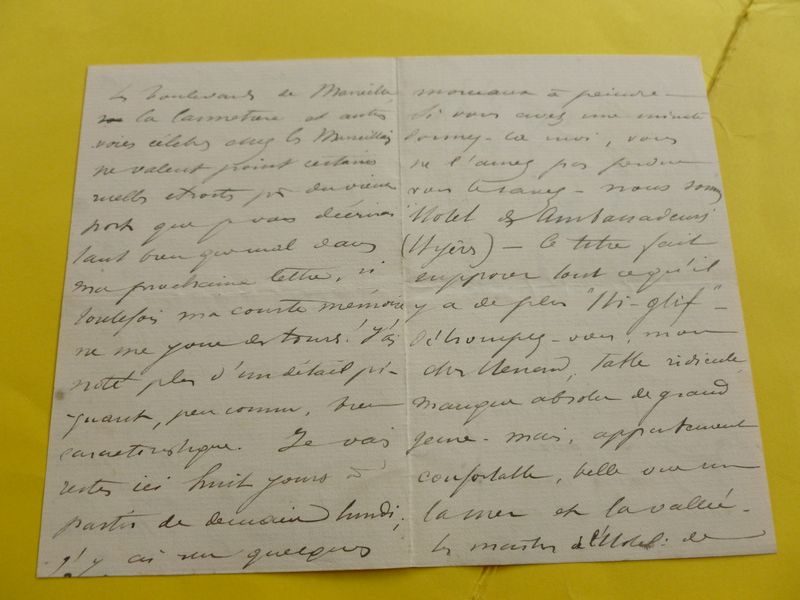 les boulevards de Marseille
la Cannebière et autres
voies célèbres chez les Marseillais
ne valent point certaines
ruelles étroites du vieux
port que je vais décrire
tant bien que mal dans
ma prochaine lettre, si
toutefois ma courte mémoire
ne me joue des tours! J'ai
noté plus d'un détail pi-
quant, peu connu, bien
caractéristique. Je vais
rester ici huit jours à
partir de demain lundi;
j'y ai vu quelques
morceaux à peindre -
Si vous avez une minute
donnez-la moi, vous
ne l'aurez pas perdue
vous le savez - nous sommes
Hotel des Ambassadeurs
(Hyères) - Ce titre fait
supposer tout ce qu'il
y a de plus "Hi-glif" -
détrompez-vous, mon
cher, table ridicule,
manque absolu de grand
genre - mais, appartement
confortable, belle vue sur
la mer et la vallée -
les à l'Hotel: de